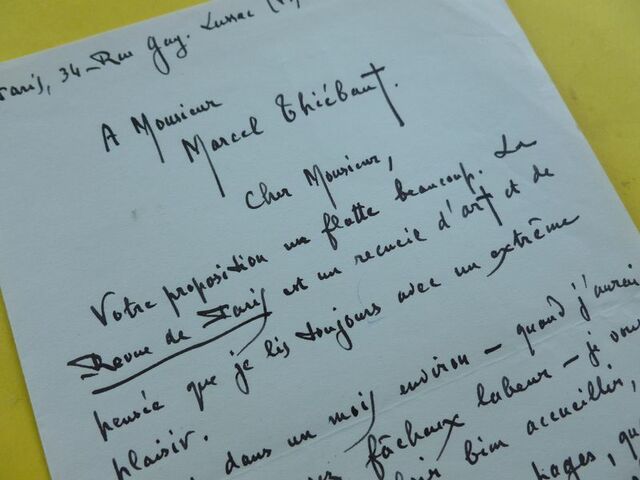 Paris, 34 - Rue Gay. Lussac (V
A Monsieur
Marcel Thiébaut.
Cher Monsieur,
Votre proposition me flatte beaucoup. La
Revue de Paris est un recueil d'art et de
pensée que je lis toujours avec un extrême
plaisir.
dans un mois environ — quand j'aurai
fâcheux labeur — je vous
bien accueillir,
pages, que